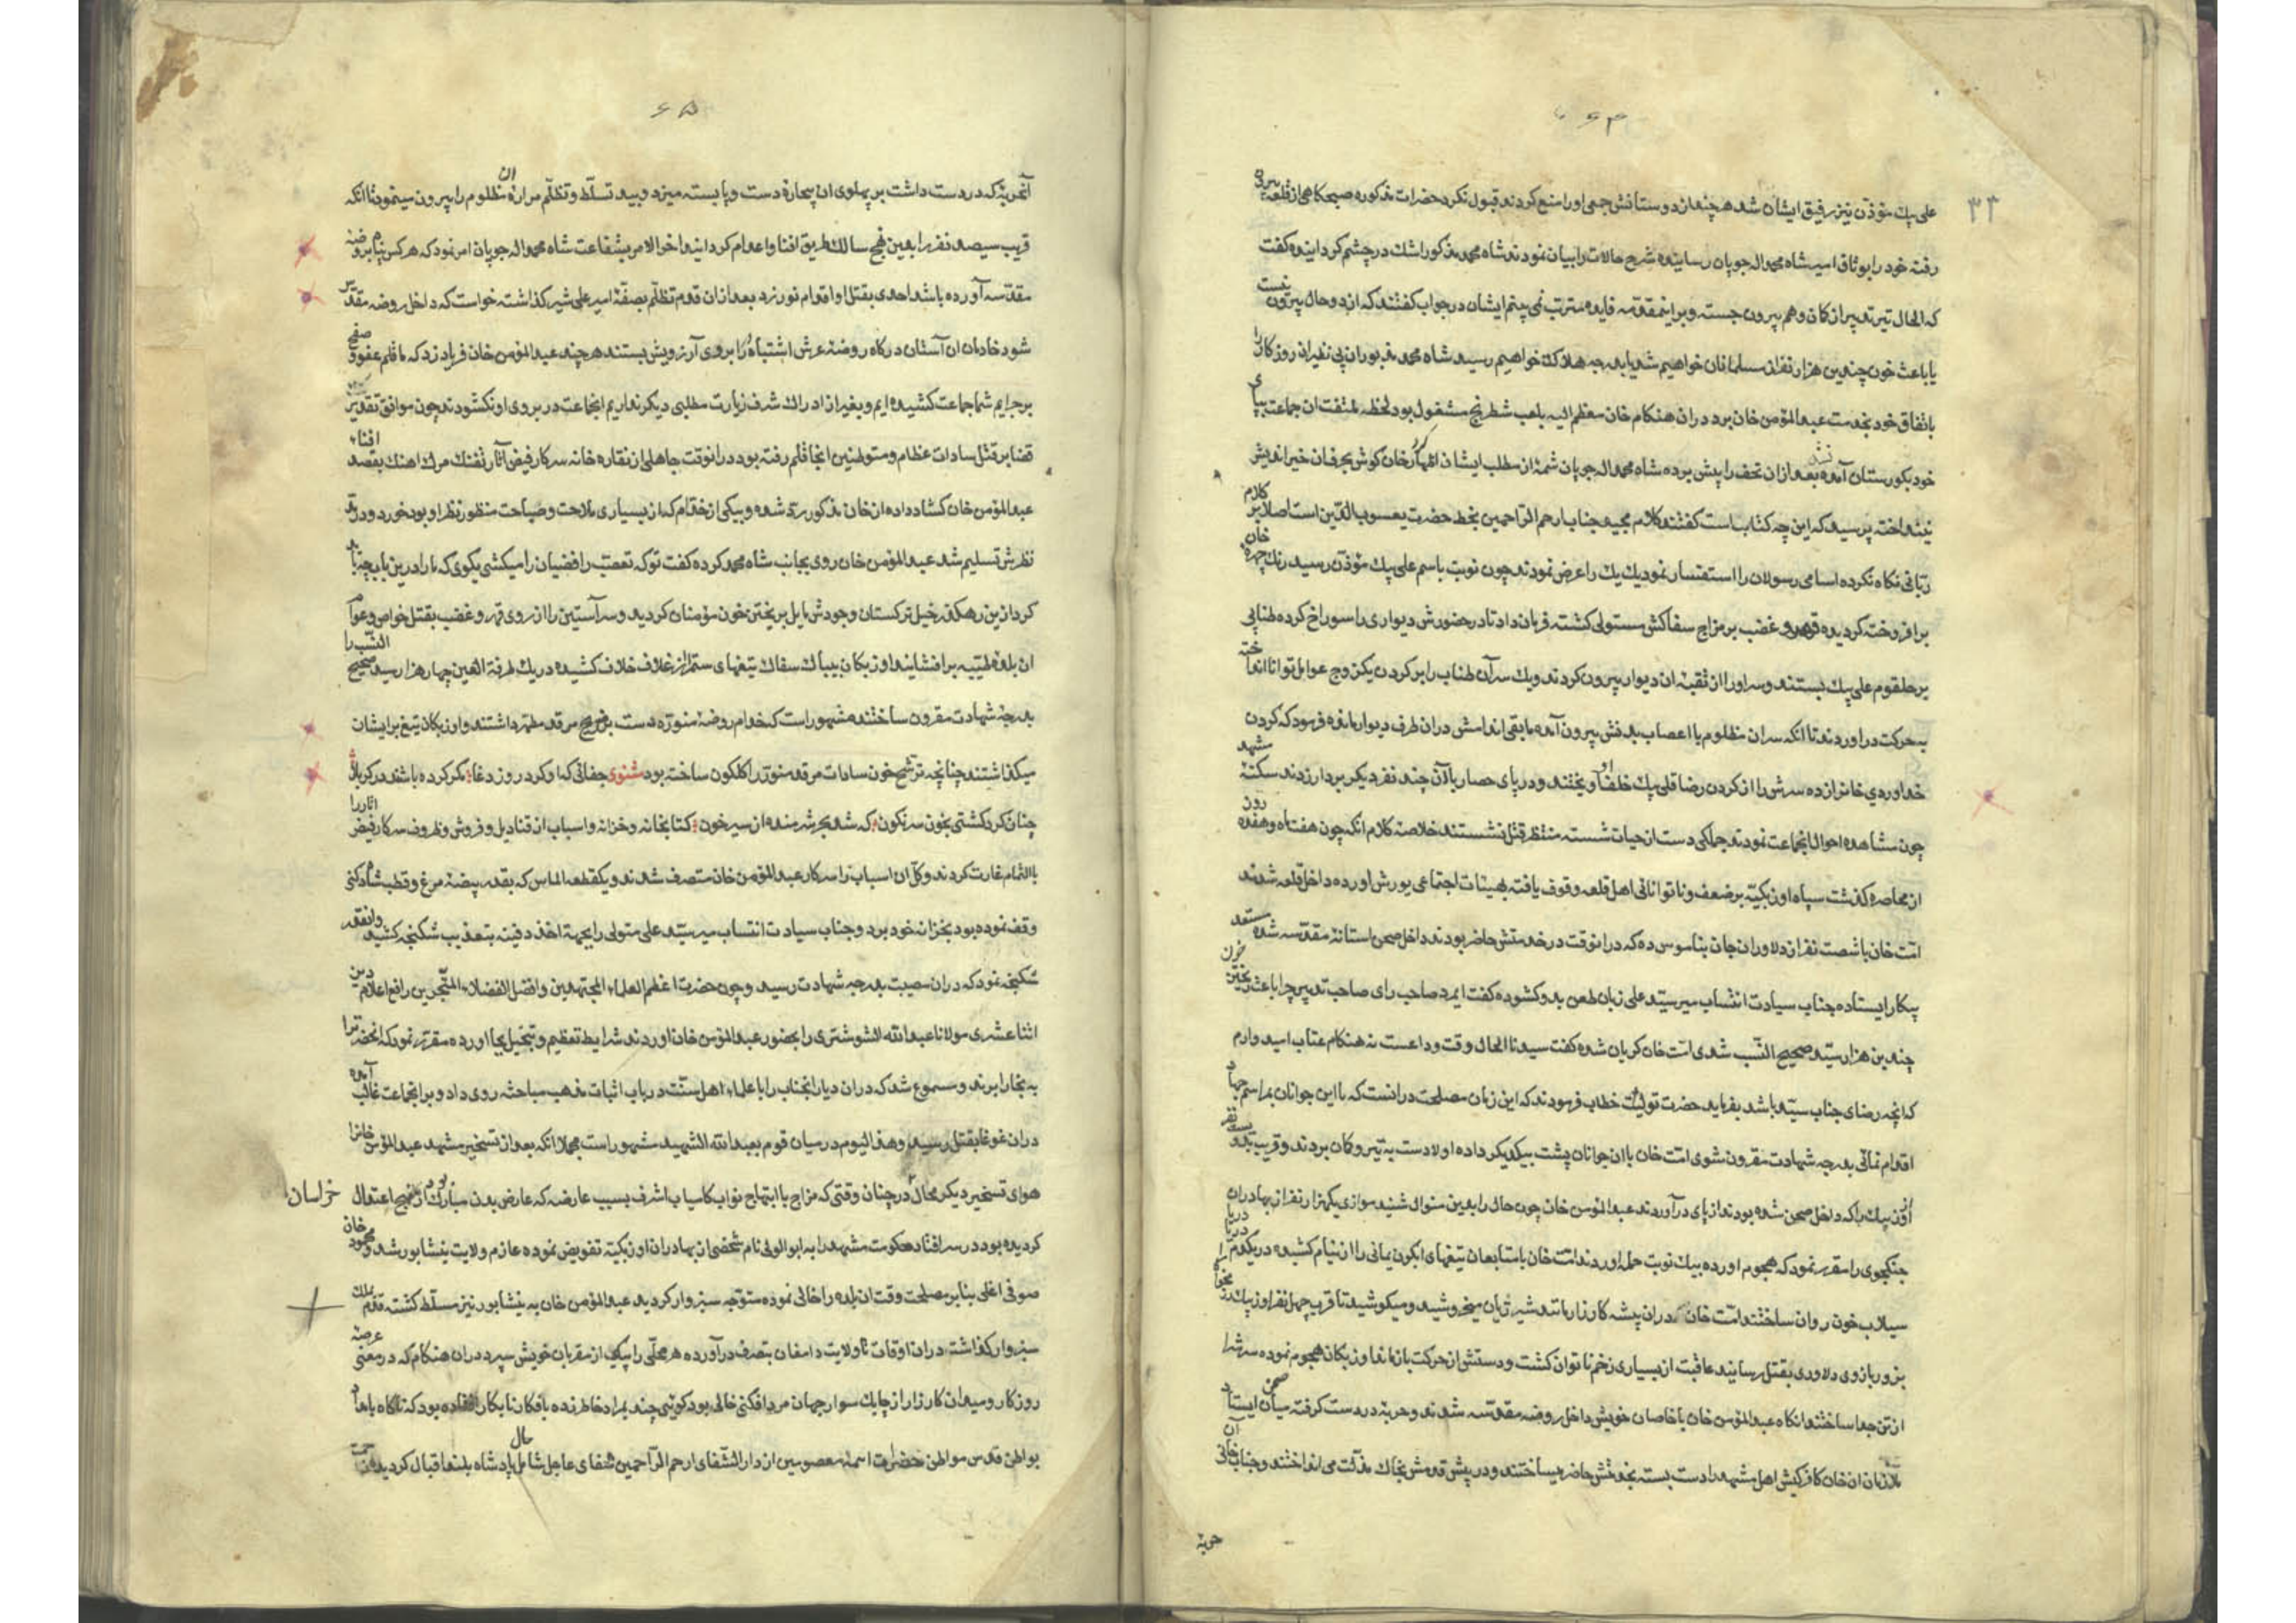 ۶۴
۳۳
علی بیک مؤذن نیز رفیق ایشان شد هر چند از دوستانش جمعی اورا منع کردند قبول نکرد حضرات مذکوره صبحکاهی از قلعه بیرون
رفته خود را بوثاق امیر شاه محمد اله جویان رسانیده شرح حالات را بیان نمودند شاه محمد مذکور اشک در چشم کردانیده کفت
که الحال تیر تدبیر از کان وهم بیرون جسته و بر اینمقدمه فایده مترتب نمی بینم ایشان در جواب کفتند که از دو حال بیرون نیست
یا باعث خون چندین هزار نفر از مسلمانان خواهیم شد یا بدرجه هلاکت خواهیم رسید شاه محمد مذبور ان بی نظیران روزکار را
باتفاق خود بخدمت عبد المؤمن خان برد در ان هنکام خان معظم الیه بلعب شطرنج مشغول بود لحظه ملتفت ان جماعت
خود بکورستان آمده بعد ازان تحف را پیش برده شاه محمد اله جویان شمهٔ از مطلب ایشان اظهار کرد خان کوش بحرفان خیر اندیش
نینداخته پرسید که این چه کتاب است کفتند کلام مجید جناب ارحم الراحمین بخط حضرت یعسوب الدین است اصلا بر کلام
ربانی نکاه نکرده اسامی رسولان را استفسار نمود یک یک را عرض نمودند چون نوبت باسم علی بیک مؤذن رسید رنک چهرهٔ خان
برافروخته کردیده قهر و غضب بر مزاج سفاکش مستولی کشته فرمان داد تا در حضورش دیواری را سوراخ کرده طنابی
بر حلقوم علی بیک بستند و سر اورا از ثقبهٔ ان دیوار بیرون کردند و یک سر آن طناب را بر کردن یکزوج عوامل توانا انداخته
بحرکت در اوردند تا انکه سر ان مظلوم با اعصاب بدنش بیرون آمده مابقی اندامش در ان طرف دیوار مانده فرمود که کردن
خداوردی خانرا زده سرش را از کردن رضا قلی بیک خلف او آویختند و در پای حصار بالان چند نفر دیکر بردار زدند سکنهٔ مشهد
چون مشاهده احوال انجماعت نمودند جملکی دست از حیات شسته منتظر قتل نشستند خلاصهٔ کلام انکه چون هفت ماه و هفده روز
از محاصره کذشت سپاه اوزبکیه بر ضعف و ناتوانائی اهل قلعه وقوف یافته بهیئات اجتماعی یورش اورده داخل قلعه شدند
امت خان با شصت نفر از دلاوران جان بناموس ده که در انوقت در خدمتش حاضر بودند داخل صحن استانهٔ مقدسه شده مستعد
پیکار ایستاده جناب سیادت انتساب میر سید علی زبان طعن بدو کشوده کفت ایمرد صاحب رای صاحب تدبیر چرا باعث ریختن خون
چندین هزار سید صحیح النسب شدی امت خان کریان شده کفت سیدنا الحال وقت وداعست نه هنکام عتاب امیدوارم
که انچه رضای جناب سید باشد بفرماید حضرت تولیت خطاب فرمودند که این زمان مصلحت در انست که با این جوانان بمراسم جهاد
اقدام نمائی بدرجه شهادت مقرون شوی امت خان با ان جوانان پشت بیکدیکر داده اولا دست به تیر و کمان بردند و قریب بدویست نفر
اوزبیک را که داخل صحن شده بودند از پای درآوردند عبد المؤمن خان چون حال را بدین منوال شنید موازی یکهزار نفر از بهادران
جنکجوی را مقرر نمود که هجوم اورده بیک نوبت حمله اوردند امت خان با متابعان تیغهای ابکون یمانی را از نیام کشیده در یکدم دریا دریا
سیلاب خون روان ساختند امت خان در ان پیشه کارزار مانند شیر ژیان میخروشید و میکوشید تا قریب چهل نفر اوزبیک را
بزور بازوی دلاوری بقتل رسانید عاقبت از بسیاری زخم ناتوان کشت و دستش از حرکت باز ماند اوزبکان هجوم نموده سرش را
از تن جدا ساختند انکاه عبد المؤمن خان با خاصان خویش داخل روضه مقدسه شدند و حربه در دست کرفته میان صحن ایستاد
ملازمان ان خان کافرکیش اهل مشهد را دست بسته بخدمتش حاضر میساختند و در پیش قدمش بخاک مذلت می انداختند و جناب خانی آن
حربه
۶۵
آنحربه که در دست داشت بر پهلوی ان بیچاره دست و پا بسته میزد و بید تسلط و تظلم مراره ان مظلوم را بیرون مینمود تا انکه
قریب سیصد نفر را بدین نهج سالک طریق افنا و اعدام کردانید اخر الامر بشفاعت شاه محمد اله جویان امر نمود که هر کس پناه بروضهٔ
مقدسه آورده باشد احدی بقتل او اقدام نورزد بعد ازان قدم تظلم بصفهٔ امیر علی شیر کذاشته خواست که داخل روضه مقدسه
شود خادمان ان آستان درکاه روضه عرش اشتباه را بروی آرزویش بستند هر چند عبد المؤمن خان فریاد زد که ما قلم عفو و صفح
بر جرایم شما جماعت کشیده ایم و بغیر از ادراک شرف زیارت مطلبی دیکر نداریم انجماعت در بروی او نکشودند چون موافق تقدیر
قضا بر قتل سادات عظام و متوطنین انجا قلم رفته بود در انوقت جاهلی از نقاره خانه سرکار فیض آثار تفنک مرک اهنک بقصد افناء
عبد المؤمن خان کشاد داده ان خان مذکور رد شده و بیکی از خدام که از بسیاری ملاحت و صباحت منظور نظر او بود خورد و در
نظرش تسلیم شد عبد المؤمن خان روی بجانب شاه محمد کرده کفت تو که تعصب رافضیان را میکشی بکوی که مارا درین باب چه باید
کرد ازین رهکذر خیل ترکستان وجودش مایل بریختن خون مؤمنان کردید و سر آستین را از روی قهر و غضب بقتل خواص و عوام
ان بلدهٔ طیبه برافشانید اوزبکان بیباک سفاک تیغهای ستم را از غلاف خلاف کشیده در یک طرفة العین چهار هزار سید صحیح النسب را
بدرجهٔ شهادت مقرون ساختند مشهور است که خدام روضهٔ منوره دست بر ضریح مرقد مطهر داشتند و اوزبکان تیغ بر ایشان
میکذاشتند چنانچه ترشح خون سادات مرقد منور را کلکون ساخته بود مثنوی جفائی که او کرد روز دغا مکر کرده باشند در کربلا
چنان کرد کشتی بخون سرنکون که شد بحر شرمنده از سیر خون کتابخانه و خزانه و اسباب از قنادیل و فروش و ظروف سرکار فیض اثار را
بالتمام غارت کردند و کل ان اسباب را سرکار عبد المؤمن خان متصرف شدند و یکقطعه الماس که بقدر بیضهٔ مرغ و قطب شاه دکنی
وقف نموده بود بخزانه خود برد و جناب سیادت انتساب میر سید علی متولی را بجهة اخذ دفینه بتعذیب شکنجه کشید و انقدر
شکنجه نمود که دران مصیبت بدرجه شهادت رسید و چون حضرت اعظم العلماء المجتهدین و افضل الفضلاء المتبحرین رافع اعلام دین
اثنا عشری مولانا عبد الله الشوشتری را بحضور عبد المؤمن خان اوردند شرایط تعظیم و تبجیل بجا اورده مقرر نمود که انحضرت را
به بخارا برند و مسموع شد که دران دیار انجناب را با علماء اهل سنت در باب اثبات مذهب مباحثه روی داد و بر انجماعت غالب آمده
دران غوغا بقتل رسید و هذا الیوم در میان قوم بعبد الله الشهید مشهور است مجملا انکه بعد از تسخیر مشهد عبد المؤمن خانرا
هوای تسخیر دیکر محال خراسان در چنان وقتی که مزاج با ابتهاج نواب کامیاب اشرف بسبب عارضه که عارض بدن مبارک بود از نهج اعتدال
کردیده بود در سر افتاد حکومت مشهد را به ابو الولی نام شخصی از بهادران اوزبکیه تفویض نموده عازم ولایت نیشابور شد و محمود خان
صوفی اغلی بنا بر مصلحت وقت ان بلده را خالی نموده متوجه سبزوار کردید عبد المؤمن خان به نیشابور نیز مسلط کشته قدم بملک
سبزوار کذاشت در ان اوقات تا ولایت دامغان بتصرف درآورده هر محلی را بیکی از مقربان خویش سپرد دران هنکام که در معنی عرصهٔ
روزکار و میدان کارزار از چابک سوار جهان مرد افکنی خالی بود کوئی چند بمراد خاطر زده بافکار نابکار افتاده بود که ناکاه بامداد
بواطن قدس مواطن حضرات ائمهٔ معصومین از دار الشفای ارحم الراحمین شفای عاجل شامل حال پادشاه بلند اقبال کردید